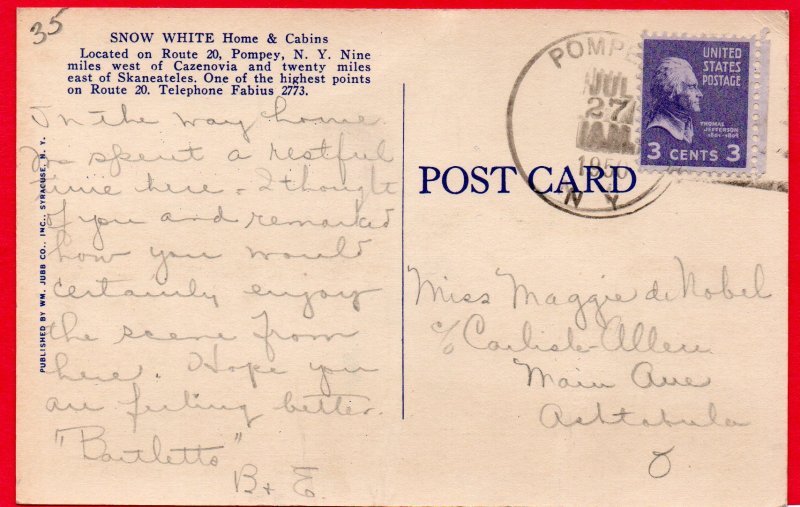 35
SNOW WHITE Home & Cabins
Located on Route 20, Pompey, N. Y. Nine
miles west of Cazenovia and twenty miles
east of Skaneateles. One of the highest points
on Route 20. Telephone Fabius 2773.
In the way home
spent a restful
time here - I thought
of you and remarked
how you would
certainly enjoy
the scene from
here. Hope you
are feeling better.
"Bartletts"
B + E.
PUBLISHED BY WM. JUBB CO., INC., SYRACUSE, N. Y.
POST CARD
POMPE
JUL
27
AM
1956
N Y
UNITED
STATES
POSTAGE
THOMAS
JEFFERSON
1801-1809
3 CENTS 3
Miss Maggie de Nobel
c/o Carlisle-Allen
Main Ave
Ashtabula
O